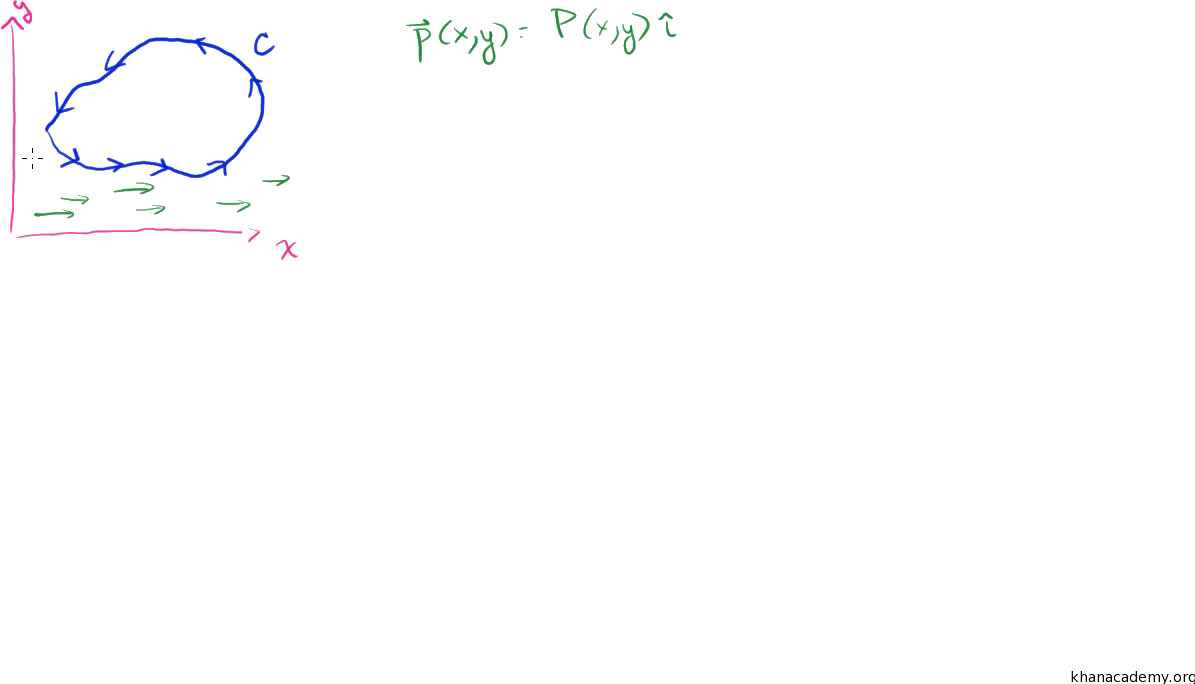 y
C
x
p⃗(x,y) = P(x,y) î
khanacademy.org